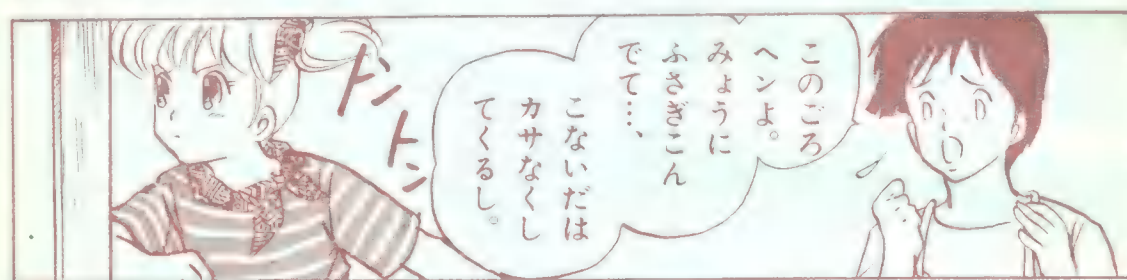 このごろ
ヘンよ。
みょうに
ふさぎこん
でて…、
こないだは
カサなくし
てくるし。
トン
トン